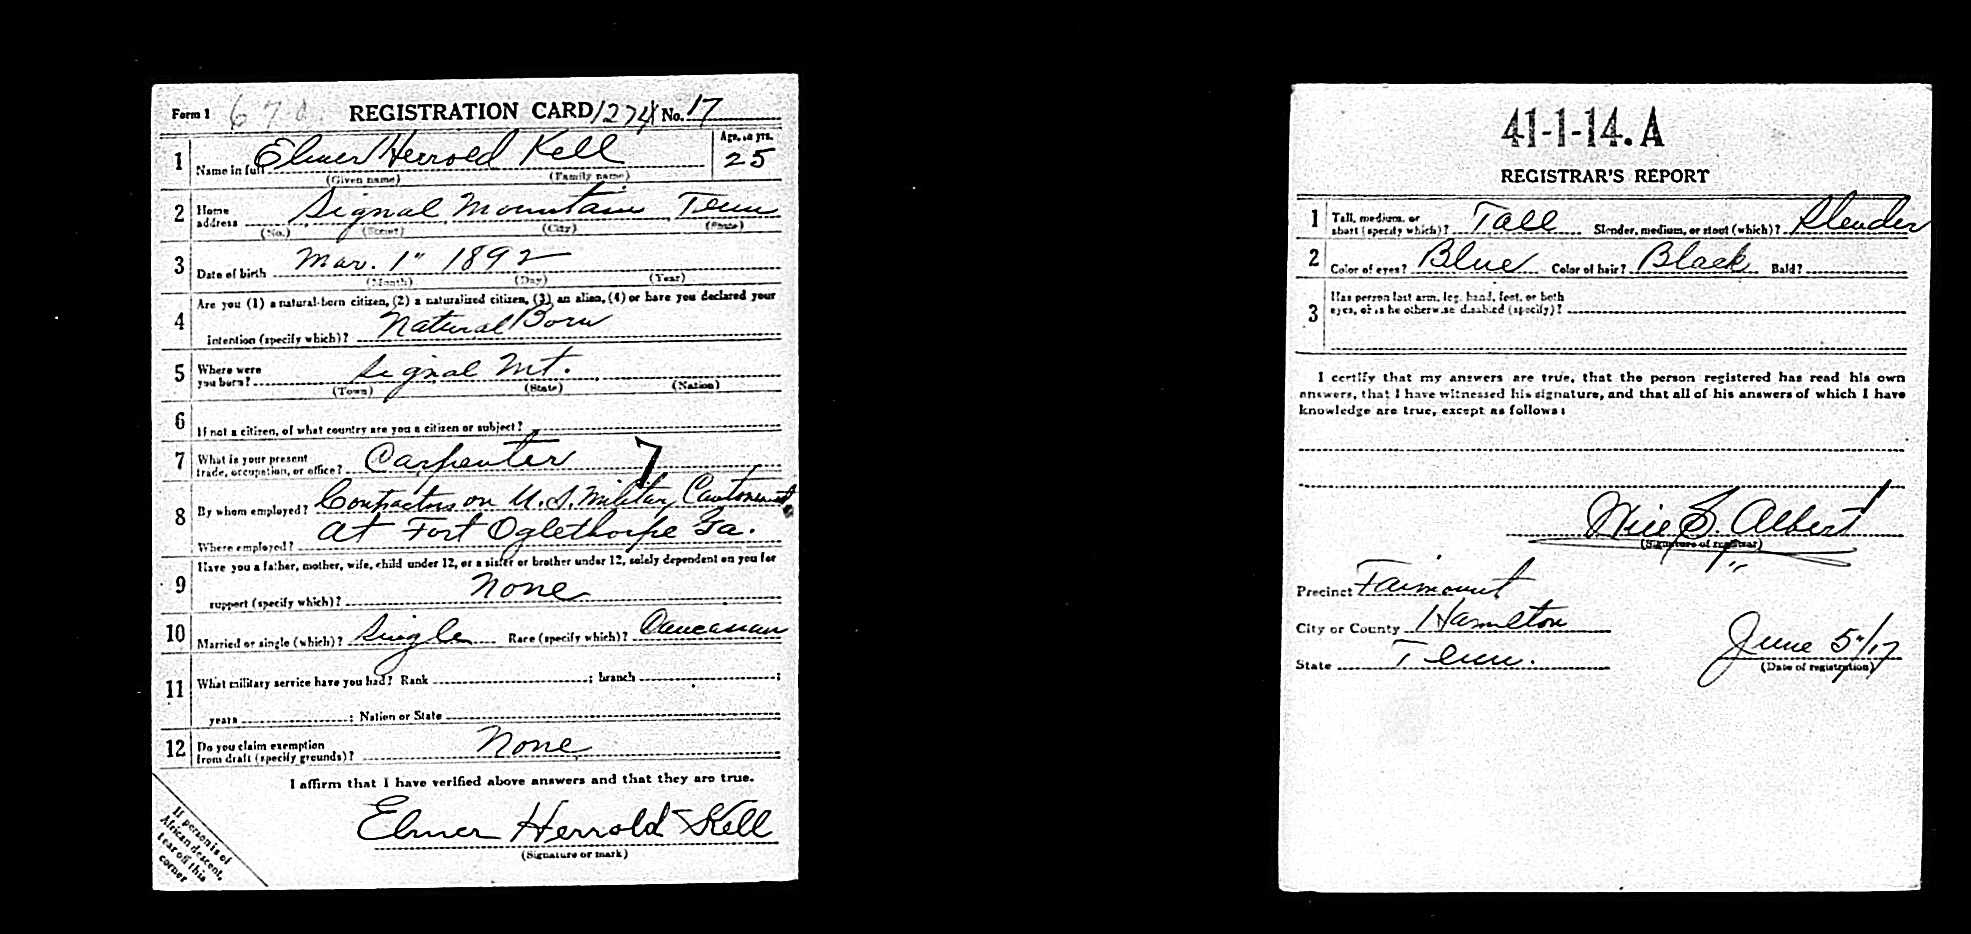 Form 1 670. REGISTRATION CARD 1274 No. 17
1 Name in full Elmer Herrold Kell Age, in yrs. 25
(Given name) (Family name)
2 Home address Signal Mountain Tenn
(No.) (Street) (City) (State)
3 Date of birth Mar. 1" 1892
(Month) (Day) (Year)
4 Are you (1) a natural-born citizen, (2) a naturalized citizen, (3) an alien, (4) or have you declared your
intention (specify which)? Natural Born
5 Where were you born? Signal Mt.
(Town) (State) (Nation)
6 If not a citizen, of what country are you a citizen or subject?
7 What is your present trade, occupation, or office? Carpenter 7
8 By whom employed? Contractors on U. S. Military Cantonment
Where employed? at Fort Oglethorpe Ga.
9 Have you a father, mother, wife, child under 12, or a sister or brother under 12, solely dependent on you for
support (specify which)? None
10 Married or single (which)? Single Race (specify which)? Caucasian
11 What military service have you had? Rank ; branch ;
years ; Nation or State
12 Do you claim exemption from draft (specify grounds)? None
I affirm that I have verified above answers and that they are true.
Elmer Herrold Kell
(Signature or mark)
If person is of
African descent,
tear off this
corner
41-1-14. A
REGISTRAR'S REPORT
1 Tall, medium, or short (specify which)? Tall Slender, medium, or stout (which)? Slender
2 Color of eyes? Blue Color of hair? Black Bald?
3 Has person lost arm, leg, hand, foot, or both
eyes, or is he otherwise disabled (specify)?
I certify that my answers are true, that the person registered has read his own
answers, that I have witnessed his signature, and that all of his answers of which I have
knowledge are true, except as follows:
S. Albert
(Signature of registrar)
Precinct Fairmount
City or County Hamilton
State Tenn.
June 5"/17
(Date of registration)